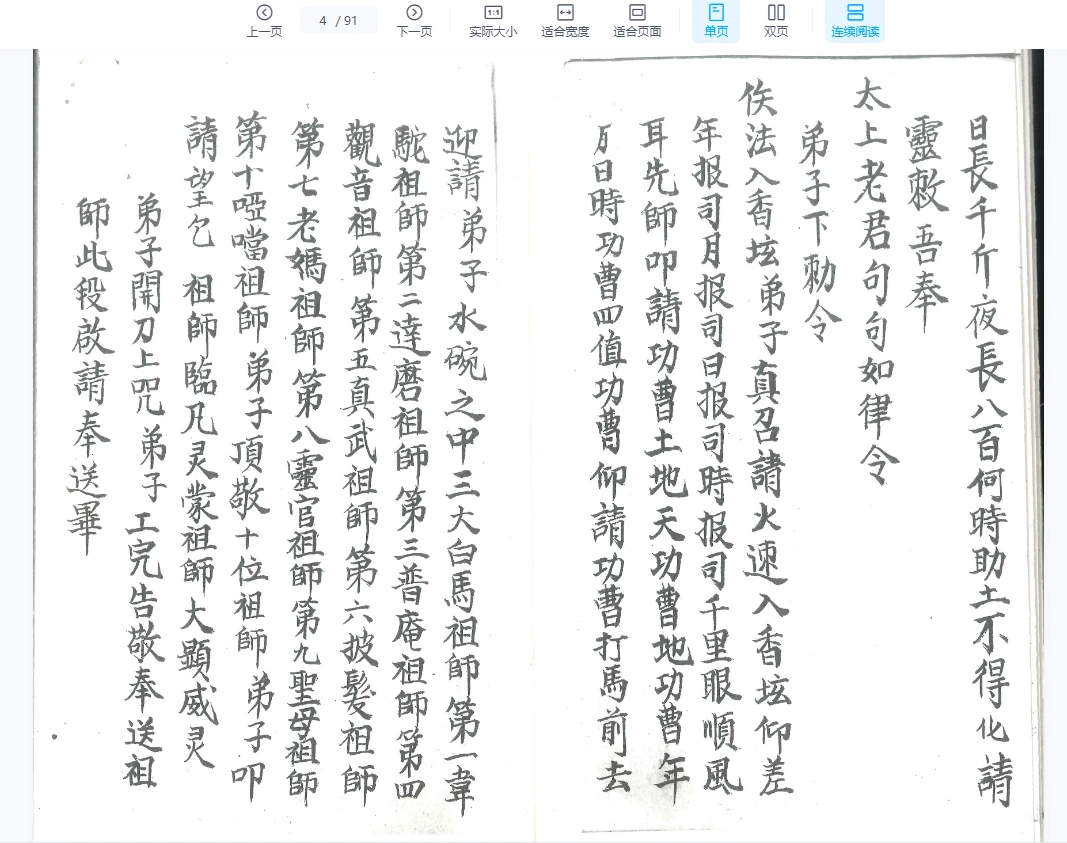 上一页
4 / 91
下一页
1:1
实际大小
适合宽度
适合页面
单页
双页
连续阅读
日長千斤夜長八百何時助土不得化請
靈敕吾奉
太上老君句句如律令
弟子下勅令
俟法入香坛弟子真召請火速入香坛仰差
年报司月报司日报司時报司千里眼順風
耳先師叩請功曹土地天功曹地功曹年
月日時功曹四值功曹仰請功曹打馬前去
迎請弟子水碗之中三大白馬祖師第一韋
駝祖師第二達磨祖師第三普庵祖師第四
觀音祖師第五真武祖師第六披髮祖師
第七老媽祖師第八靈官祖師第九聖母祖師
第十啞噹祖師弟子頂敬十位祖師弟子叩
請望乞祖師臨凡灵蒙祖師大顯威灵
弟子開刀上咒弟子工完告敬奉送祖
師此段啟請奉送畢